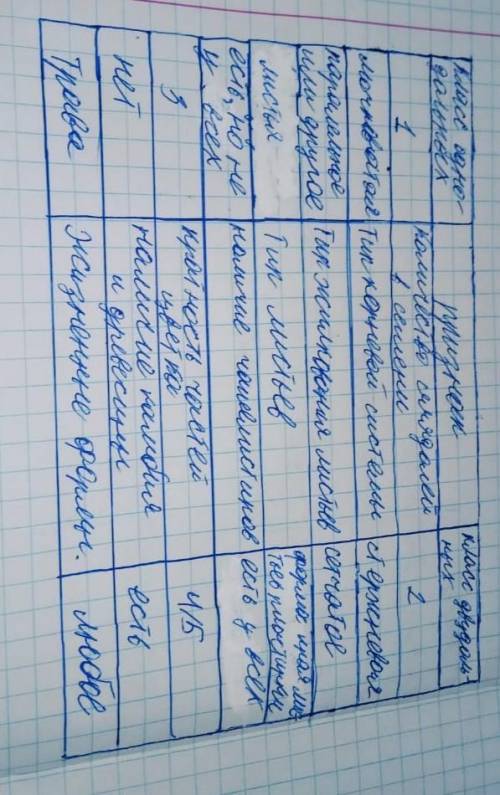 класс одно-
дольных
признак
класс двудоль-
ных
1
количество семядолей
в семени
2
мочковатая
Тип корневой системы
стержневая
параллельное
или другое
Тип жилкования листьев
сетчатое
листья
Тип листьев
форма края лис-
товой пластинки
есть, но не
у всех
наличие чашелистиков
есть у всех
3
кратность частей
цветка
4/5
нет
наличие камбия
и древесины
есть
Трава
Жизненные формы.
Любое